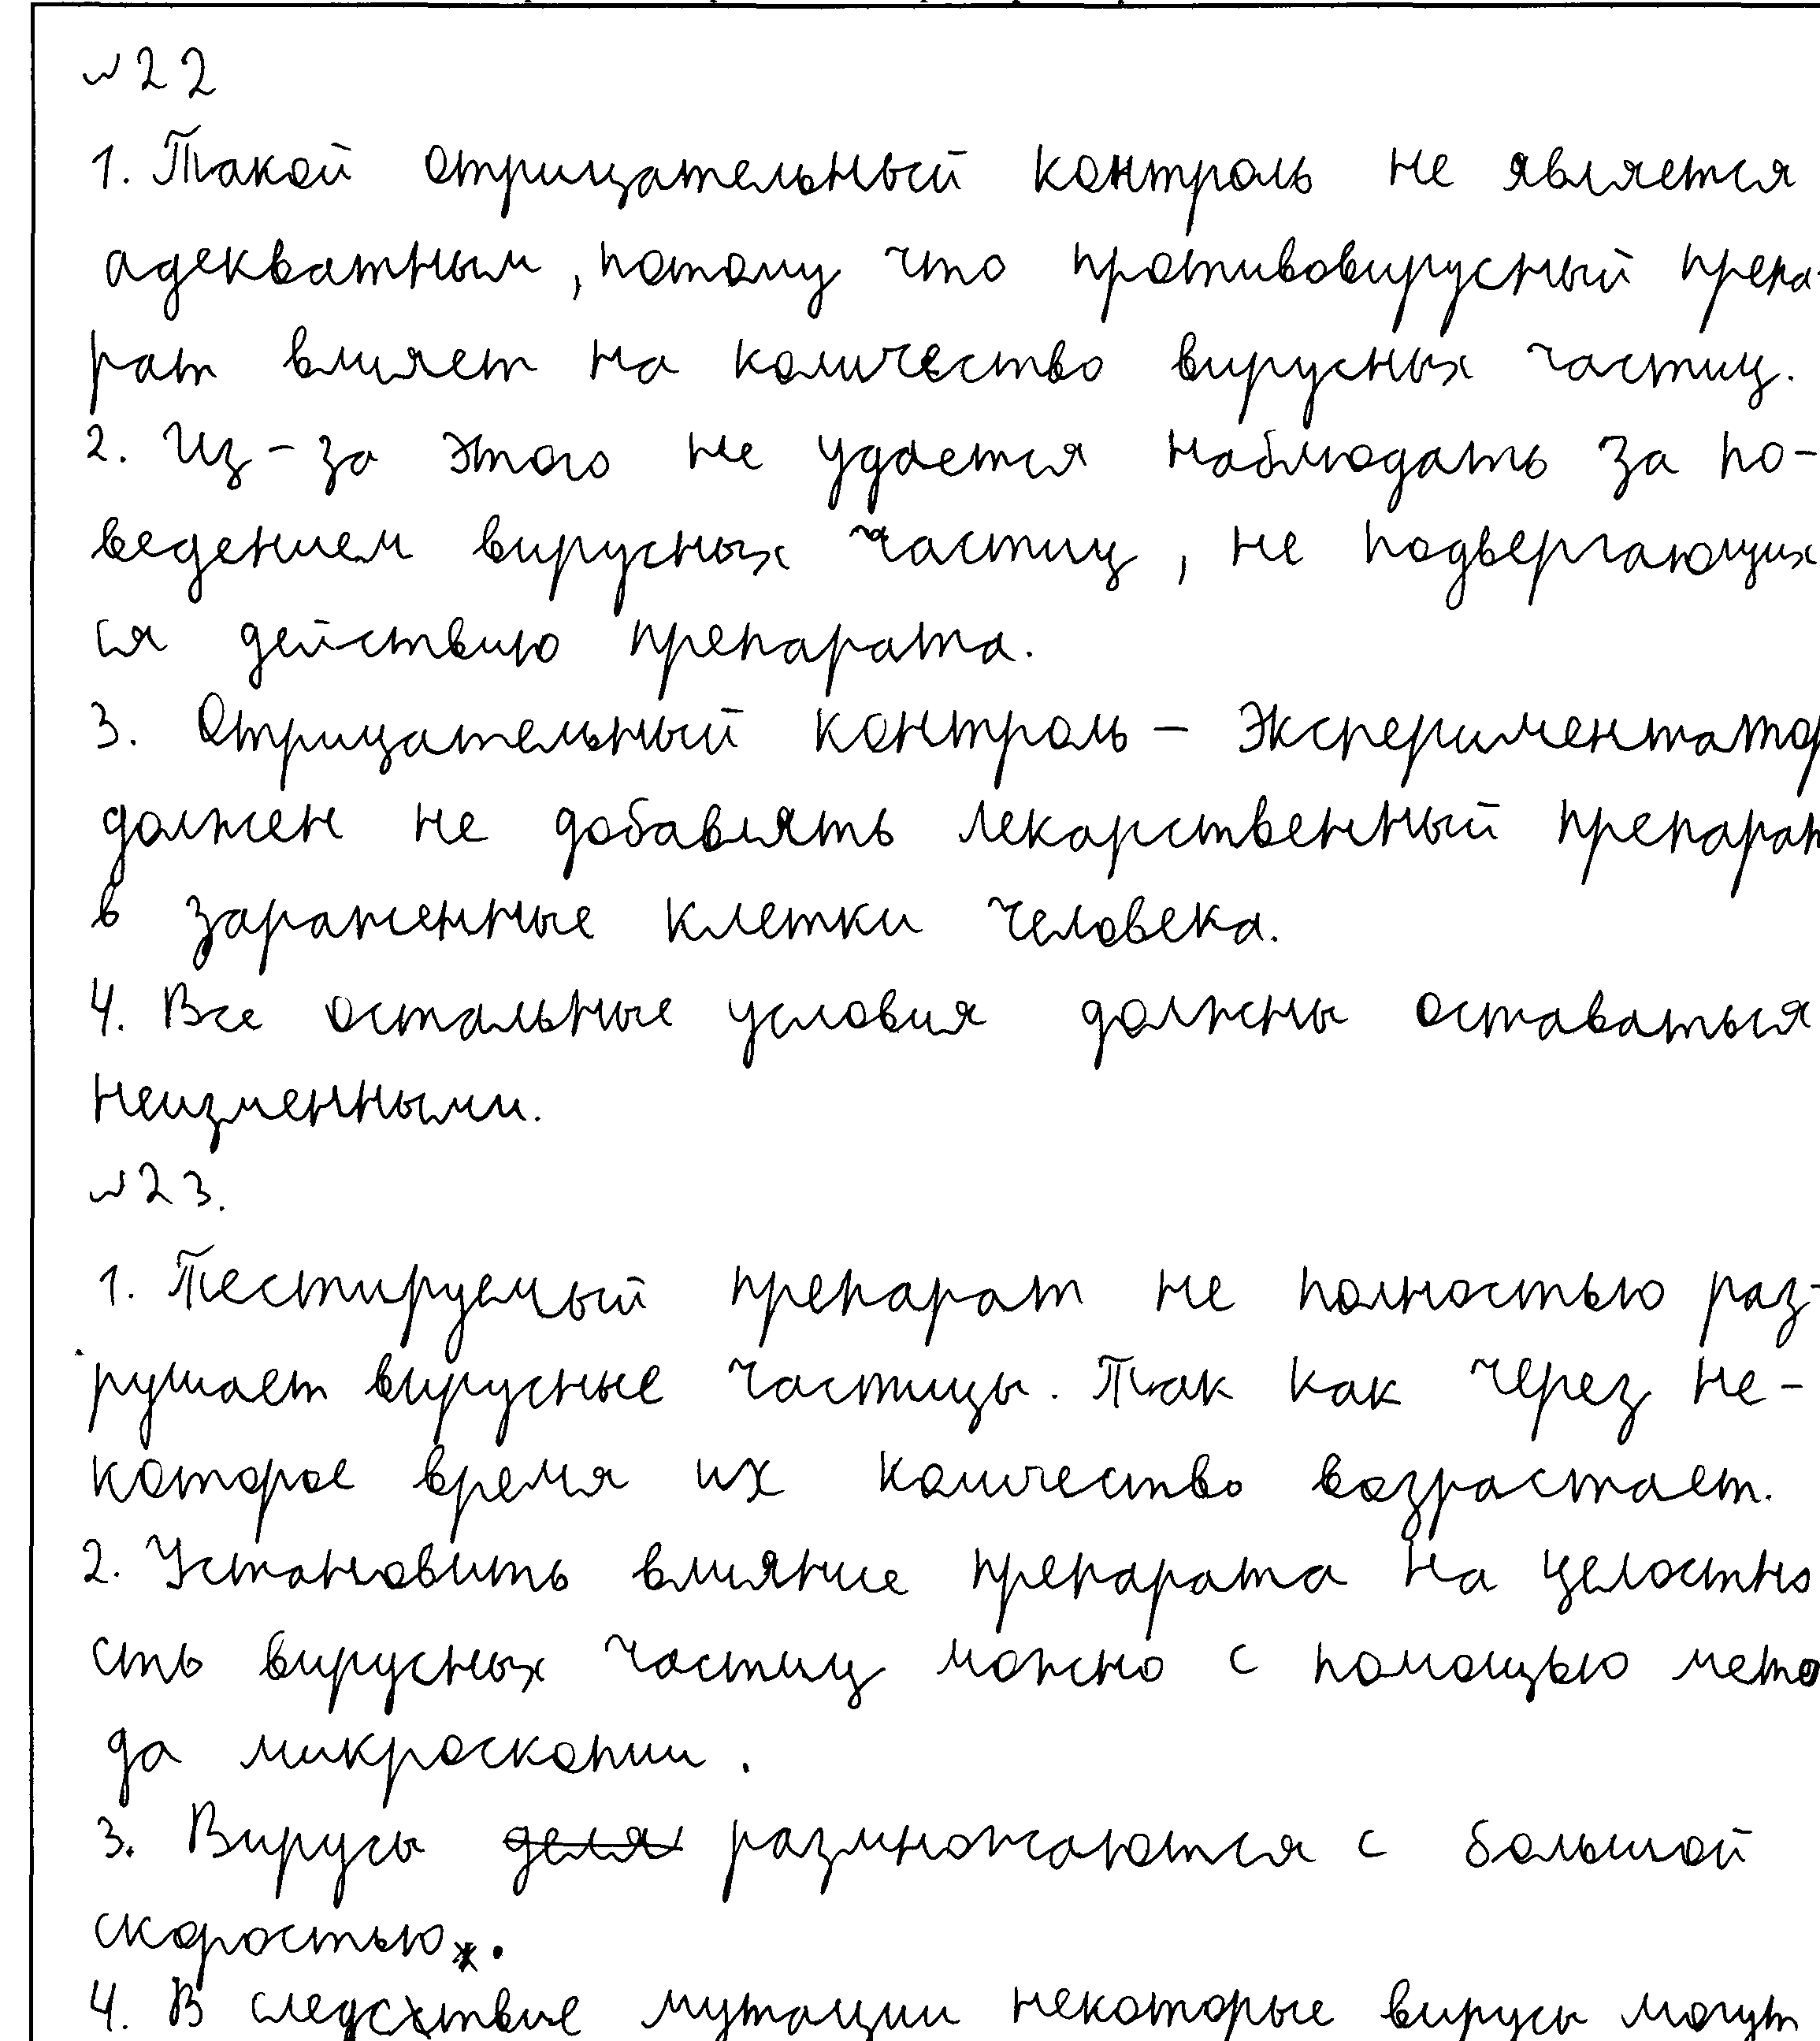 №22
1. Такой отрицательный контроль не является
адекватным, потому что противовирусный препа-
рат влияет на количество вирусных частиц.
2. Из-за этого не удается наблюдать за по-
ведением вирусных частиц, не подвергающих
ся действию препарата.
3. Отрицательный контроль – экспериментатор
должен не добавлять лекарственный препарат
в зараженные клетки человека.
4. Все остальные условия должны оставаться
неизменными.
№23.
1. Тестируемый препарат не полностью раз-
рушает вирусные частицы. Так как через не-
которое время их количество возрастает.
2. Установить влияние препарата на целостно
сть вирусных частиц можно с помощью мето
да микроскопии.
3. Вирусы деля размножаются с большой
скоростью.
4. В следствие мутации некоторые вирусы могут